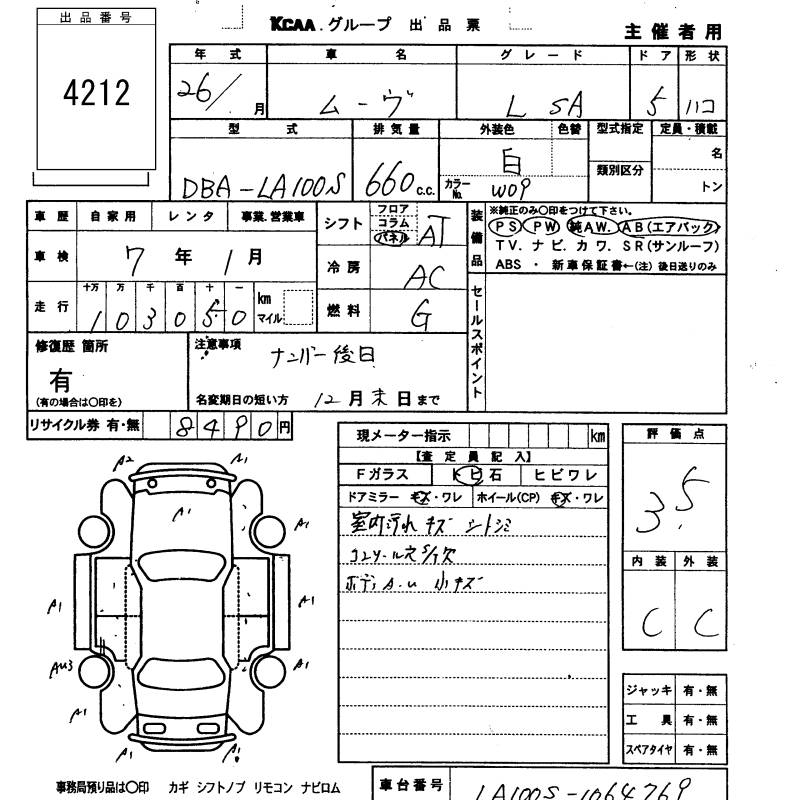 出品番号
4212
KCAA グループ 出品票
主催者用
年式 車名 グレード ドア 形状
26/ 月 ムーヴ L SA 5 ハコ
型式 排気量 外装色 色替 型式指定 定員・積載
DBA-LA100S 660 c.c. 白 名
類別区分
カラーNo. W09 トン
車歴 自家用 レンタ 事業.営業車
シフト フロア コラム パネル AT
車検 7年 1月
冷房 AC
走行 十万 万 千 百 十 一
103050 km マイル
燃料 G
装備品
※純正のみ〇印をつけて下さい。
PS PW 純AW. AB(エアバック)
TV. ナビ. カワ. SR(サンルーフ)
ABS ・ 新車保証書←(注) 後日送りのみ
セールスポイント
修復歴 箇所
有
(有の場合は〇印を)
注意事項
ナンバー後日
名変期日の短い方 12月末日まで
リサイクル券 有・無 8490円
現メーター指示 km
【査定員記入】
Fガラス トビ石 ヒビワレ
ドアミラー キズ・ワレ ホイール(CP) キズ・ワレ
室内汚れ キズ シートシミ
ボディ A.U 小キズ
評価点
3.5
内装 外装
C C
A2 A1
A1
A1 A1
A1 A1
AU3 A1
A1 A1
A1 A1
ジャッキ 有・無
工具 有・無
スペアタイヤ 有・無
事務局預り品は〇印 カギ シフトノブ リモコン ナビロム
車台番号 LA100S-1064769